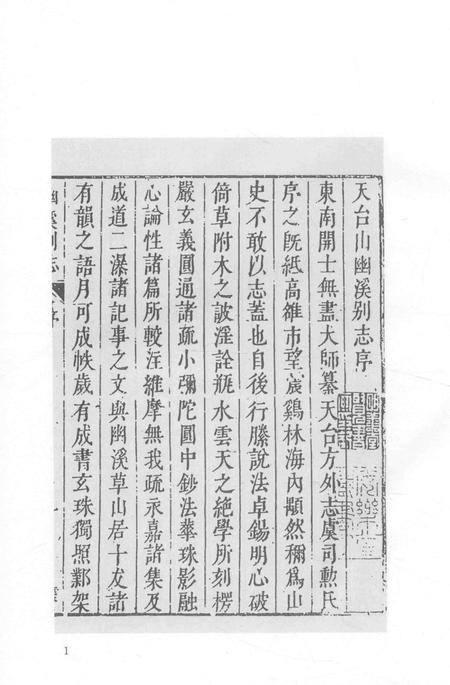 天台山幽溪别志序
東南開士無盡大師纂天台方外志虞司勲氏
序之旣紙高雒市望寔鷄林海內顒然稱爲山
史不敢以志蓋也自後行縢說法卓錫明心破
倚草附木之詖淫詮瓶水雲天之絶學所刻楞
嚴玄義圓通諸疏小彌陀圓中鈔法華珠影融
心論性諸篇所較注維摩無我疏永嘉諸集及
成道二瀑諸記事之文與幽溪草山居十友諸
有韻之語月可成帙歲有成書玄珠獨照鄴架
幽溪别志
序
1